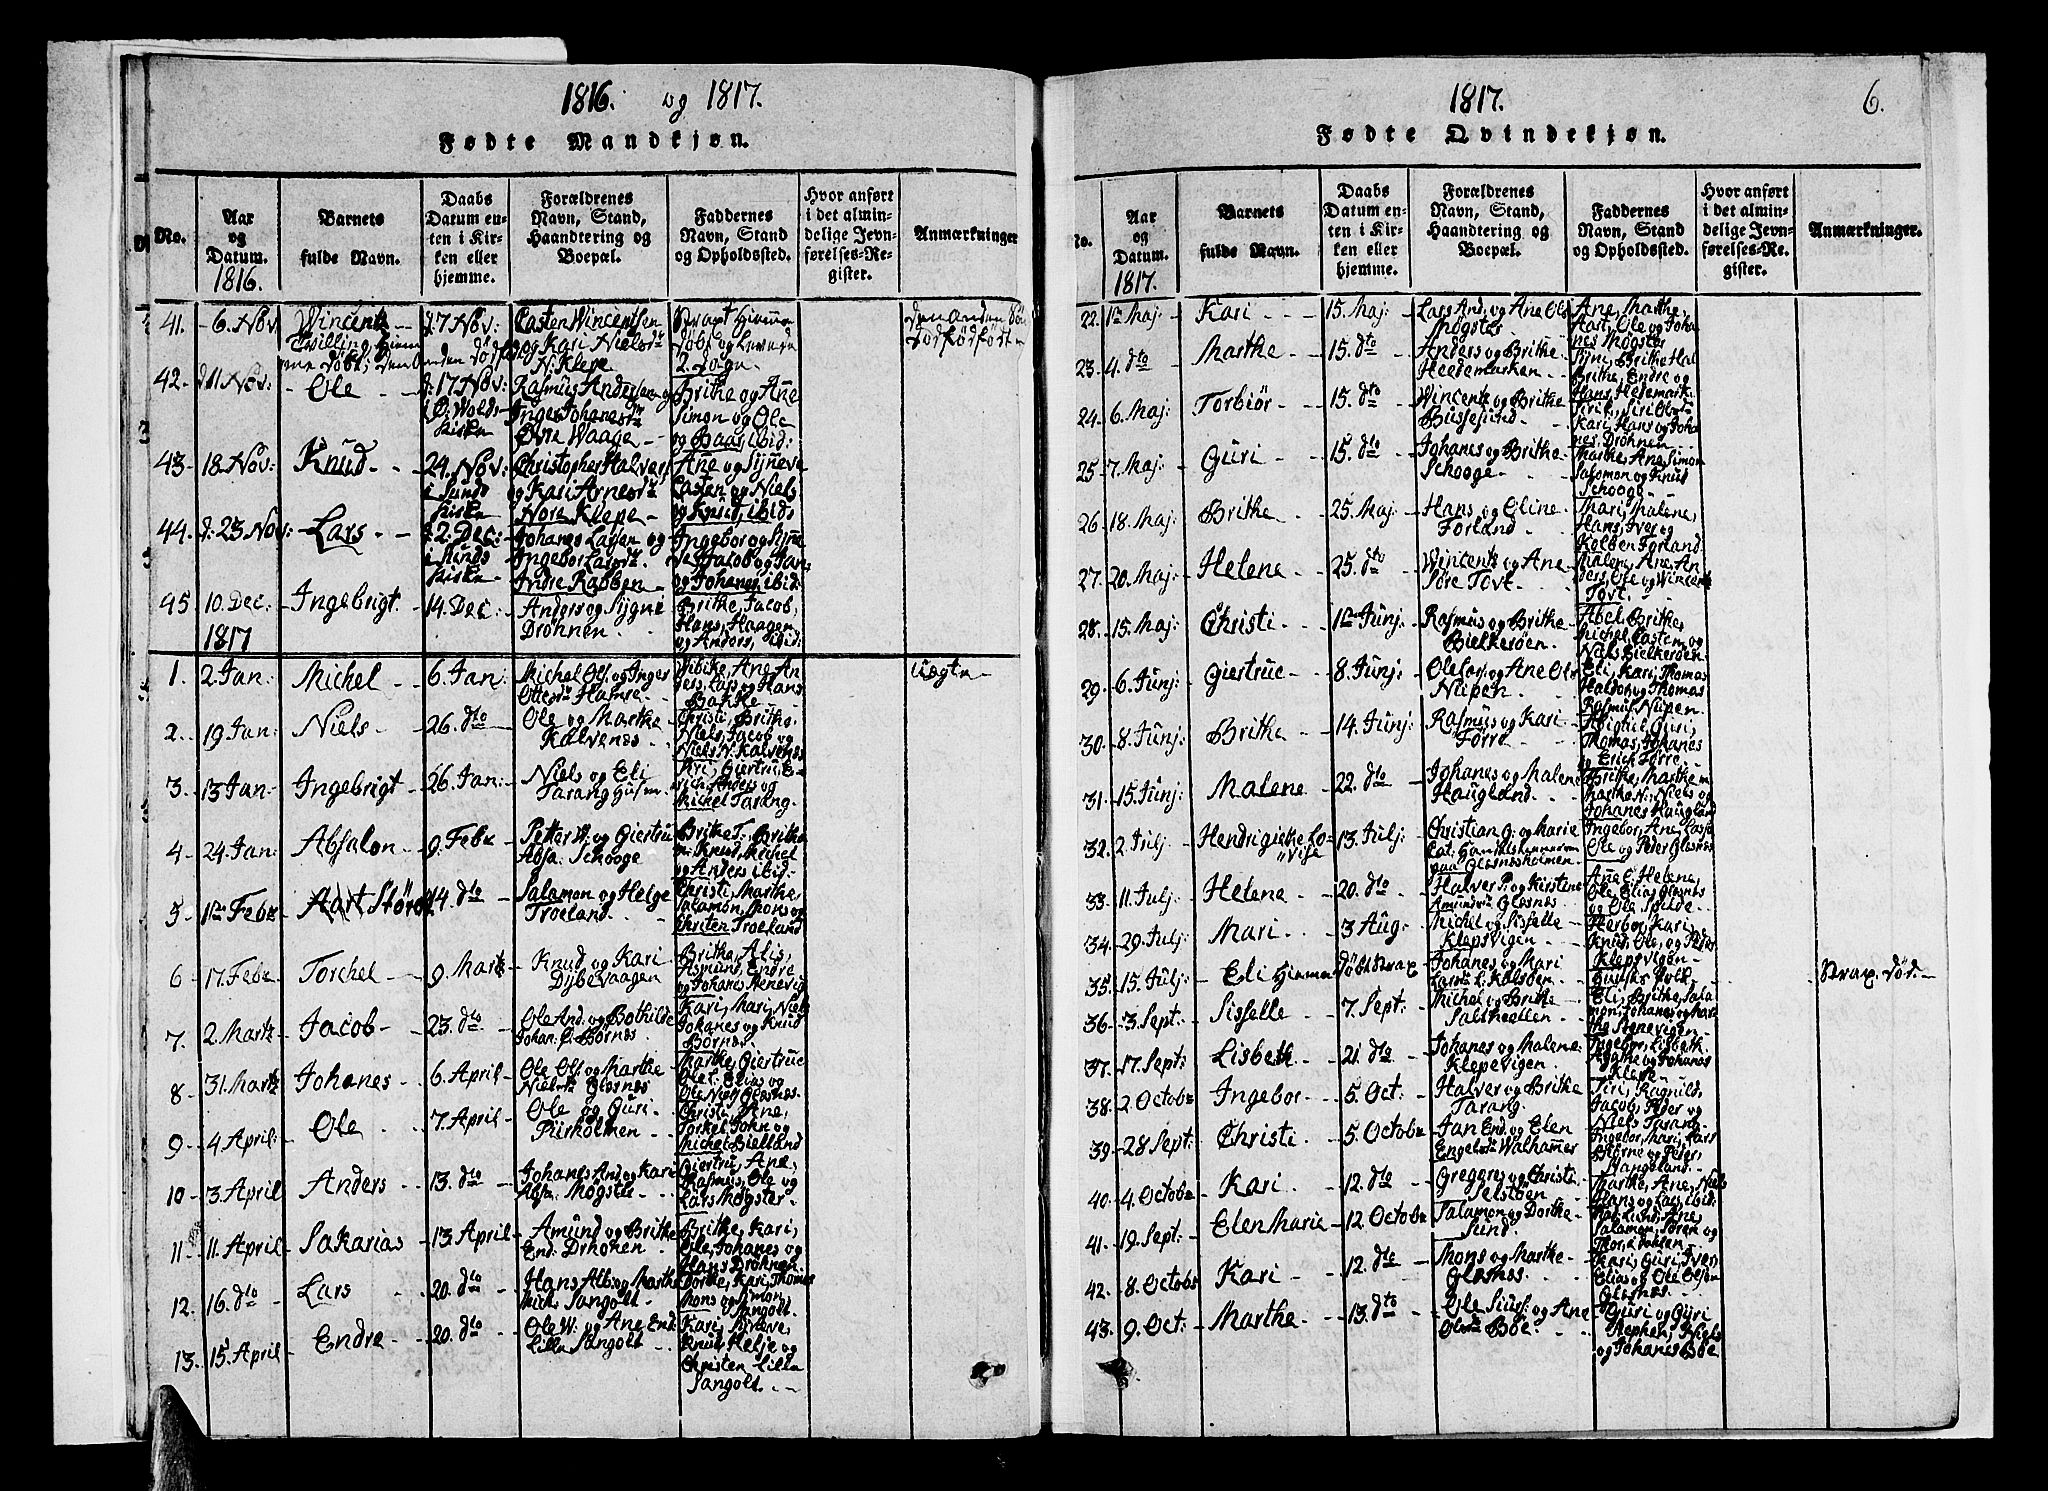 1816. og 1817.
Fødte Mandkjøn.
No.
Aar og Datum. 1816.
Barnets fulde Navn.
Daabs Datum enten i Kirken eller hjemme.
Forældrenes Navn, Stand, Haandtering og Boepæl.
Faddernes Navn, Stand og Opholdssted.
Hvor anført i det almindelige Jevnførelses-Register.
Anmærkninger
41. 6. Nov. Wincentz 17 Nov: Casten Wincentsen og Kari Nielsdr N. Klepe
42. 11 Nov: Ole 17 Nov: Rasmus Andersen og Inger Johanesdr Øvre Waage Brithe og Ane Simon og Ole og Baar, ibid:
43. 18. Nov: Knud 24. Nov: i Sund Kirke Christopher Halvers: og Kari Arnesdr Nore Klepe Ane og Synneve Casten og Niels og Knud, ibid,
44. d: 23 Nov: Lars d. 2. Dec: i Sunds Kirke Johanes Larsen og Ingebor Larsdr Indre Rabben Ingebor og Synneve, Jacob og Jan og Johanes, ibid:
45 10. Dec: Ingebrigt 14. Dec: Anders og Sygne Drøhnen Brithe, Jacob, Hans, Haagen og Anders, ibid:
1817
1. 2 Jan: Michel 6. Jan: Michel Ols: og Inger Ottersdr Hamre Uægte
2. 19 Jan: Niels 26. dto Ole og Marthe Kalvenæs Christi, Brithe, Niels, Jacob og Niels N. Kalvenæs
3. 13 Jan: Ingebrigt 26. Jan: Niels og Eli Tarang Husm Kri, Giertru, Erich, Anders og Michel Tarang.
4. 24 Jan: Absalon 9. Febr Petter W: og Giertru Absa: Schooge Brithe T: Brithe m: Knud, Michel og Anders ibid:
5. 1ste Febr Aart Størch 14. dto Salamon og Helge Troeland Christi, Marthe, Salamon, Mons og Christen Troeland
6 17. Febr Torchel 9. Martz Knud og Kari Dybevaagen Brithe, Alis, Asmund, Endre og Johanes Stenevig
7. 2. Martz Jacob 23. dto Ole And: og Bothilde Johan: S. Bornæs Kari, Mari, Niels Johanes og Knud Bornæs
8 31. Martz Johanes 6. April Ole Ols: og Marthe Nielsdr Glesnæs Marthe, Giertrue Ole E. Elias og Ole Niels Glesnæs
9 4. April: Ole 7. April Ole og Guri Piirholmen Christi, Ane, Torkel, John og Michel Bielland
10 3. April Anders 13. dto Johanes And: og Kari Absa: Møgster Giertru, Ane, Rasmus, Ole og Lars Møgster
11 11. April Sakarias 13 April Amund og Brithe End: Drhønen Brithe, Kari, Ole, Johanes og Hans Drøhnen
12. 16. dto Lars 20. dto Hans Alb: og Marthe Mich: Sangolt Dorthe, Kari, Thomas Mons og Simon, Sangolt.
13. 15. April Endre 20. dto Ole W: og Ane End: Lille Sangolt Kari, Synneve, Knud, Helje og Christen Lille Sangolt.
1817. 6.
Fødte Qvindekjøn.
No.
Aar og Datum. 1817.
Barnets fulde Navn.
Daabs Datum enten i Kirken eller hjemme.
Forældrenes Navn, Stand, Haandtering og Boepæl.
Faddernes Navn, Stand og Opholdssted.
Hvor anført i det almindelige Jevnførelses-Register.
Anmærkninger.
22. 1te Maj: Kari 15. Maj: Lars And: og Ane Ols Møgster Ane, Marthe, Aart, Ole og Johanes Møgster
23. 4. dto Marthe 15. dto Anders og Brithe Heedemarken
24. 6. Maj: Torbiør 15. dto Wincentz og Brithe Bussesund Kari, Hans og Johanes, Drøhnen
25. 7. Maj: Guri 15. dto Johanes og Brithe Schooge Marthe, Ane, Simon Salomon og Knud Schooge
26. 18. Maj: Brithe 25. Maj: Hans og Eline Forland Mari, Malene, Hans, Iver og Kolben Forland
27. 20. Maj: Helene 25. dto Wincentz og Ane Søre Tovt
28. 15. Maj: Christi 1ste Junj: Rasmus og Brithe Bielkerøen Abel, Brithe, Michel, Casten og Niels Bielkerøen
29. 6. Junj: Giertrue 8. Junj: Ole Lar: og Ane Ols Niipen Eli, Kari, Thomas Haldor og Thomas Rasmus Niipen
30. 8. Junj: Brithe 14. Junj: Rasmus og Kari Førre Abigael, Guri, Thomas, Johanes og Erich Førre
31. 15. Junj: Malene 22. dto Johanes og Malene Haugland Brithe, Marthe m Marthe N: Niels og Johanes Haugland
32. 2. Julj: Hendrigiethe Lovise 13. Julj: Christian G: og Marie paa Glesnæsholmen Ingebor, Ane, Lasse Ole og Peder Glesnæs
33. 11. Julj: Helene 20. dto Halver P: og Kirstene Amundsdr Glesnæs Ane E. Helene, Ole, Elias Glesnæs og Ole Spilde
34. 29. Julj: Mari 3 Aug: Michel og Sisselle Klepsvigen Herbor, Kari, Knud, Ole, og Peder Klepsvigen
35. 15. Julj: Eli Hjemme døbt Strax Johanes og Mari Larsdr L: Kalsøen Strax død.
36. 3. Sept: Sisselle 7. Sept: Michel og Brithe Saltnællen Eli, Brithe, Salamon, Johanes og Marthe Stenevigen
37. 17. Sept: Lisbeth 21. dto Johanes og Malene Klepevigen Ingebor, Lisbeth Agathe og Johanes Klepe
38. 2. Octobr Ingebor 5. Oct: Halver og Brithe Tarang. Siri, Ragnild, Jacob, Peder og Niels Tarang
39. 28 Sept: Christi 5. Octobr Jan End: og Elen Engelsdr Walhammer Ingebor, Mari, Lars Størne og Peter, Hangeland
40. 4. Octobr Kari 12. dto Greggers og Christi Selstøen Marthe, Ane, Niels Hans og Lars, ibid:
41. 19. Sept: Elen Marie 12. Octobr Salamon og Dorthe Sund
42. 8. Octobr Kari 12. dto Mons og Marthe Glesnæs Kari, Guri, Iver Elias og Ole Olsen Glesnæs
43. 9. Oct: Marthe 13. dto Ole Siurs: og Ane Olsdr Bøe Guri og Guri Stephen, Niels og Johanes Bøe